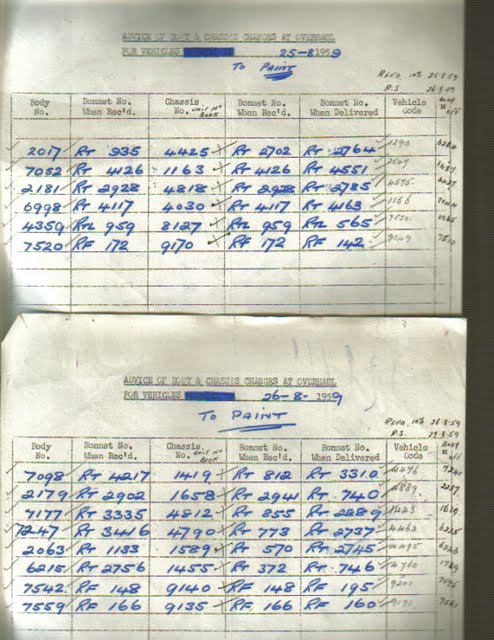 ADVICE OF BODY & CHASSIS CHANGES AT OVERHAUL
FOR VEHICLES 25-8-1959
TO PAINT
RECD. 10% 26-8-59
P.S. 26-8-59
Body No. Bonnet No. When Rec'd. Chassis No. Unit No Book Bonnet No. When Rec'd. Bonnet No. When Delivered Vehicle Code Body off
2017 RT 935 4425 RT 2702 RT 2764
7052 RT 4126 1163 RT 4126 RT 4551
2181 RT 2928 4818 RT 2928 RT 2785
6998 RT 4117 4030 RT 4117 RT 4163
4359 RTL 959 8127 RTL 959 RTL 565
7520 RF 172 9170 RF 172 RF 142
ADVICE OF BODY & CHASSIS CHANGES AT OVERHAUL
FOR VEHICLES 26-8-1959
TO PAINT
P.S. 27-8-59
Body No. Bonnet No. When Rec'd. Chassis No. Unit No Book Bonnet No. When Rec'd. Bonnet No. When Delivered Vehicle Code Body off
7098 RT 4217 1419 RT 812 RT 3310
2179 RT 2902 1658 RT 2941 RT 740
7177 RT 3335 4812 RT 855 RT 2889
7247 RT 3416 4790 RT 773 RT 2737
2063 RT 1133 1589 RT 570 RT 2745
6215 RT 2756 1455 RT 372 RT 746
7542 RF 148 9140 RF 148 RF 195
7559 RF 166 9135 RF 166 RF 160